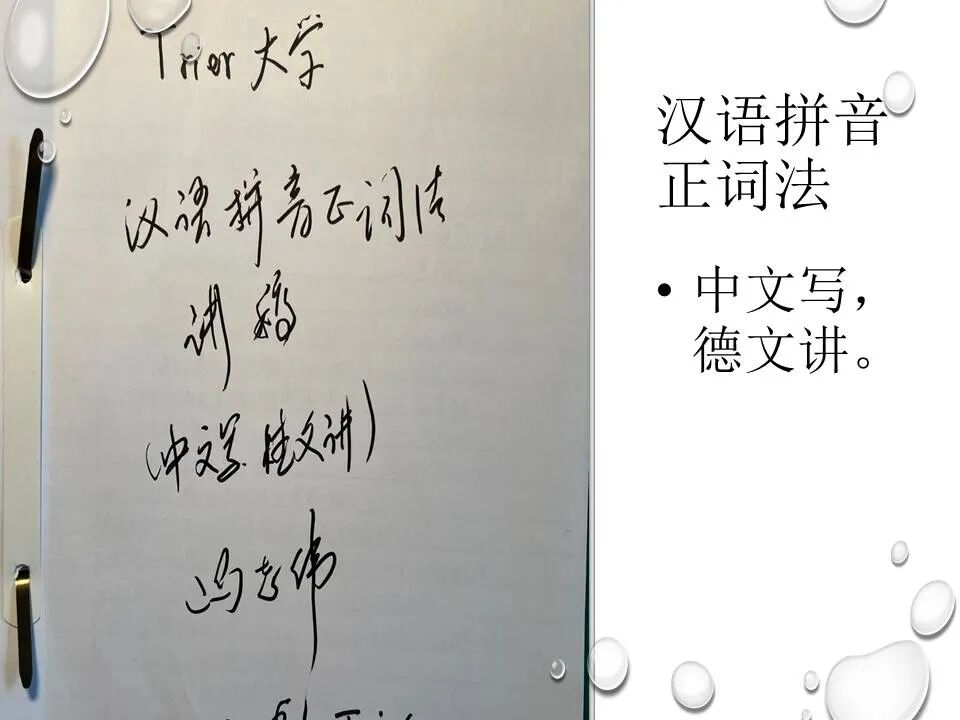 Trier 大学
汉语拼音正词法
讲稿
(中文写 德文讲)
冯志伟
汉语拼音
正词法
• 中文写，
德文讲。